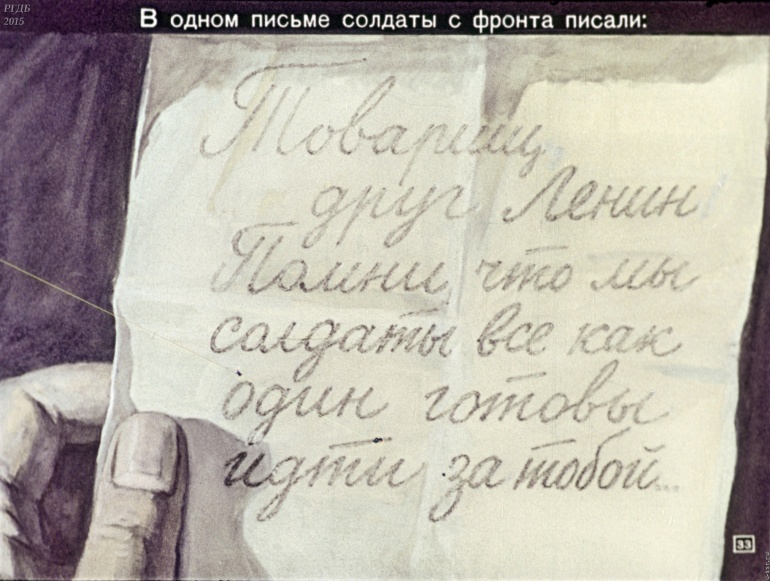 РГДБ
2015
В одном письме солдаты с фронта писали:
Товарищ
друг Ленин
Помни, что мы
солдаты все как
один готовы
идти за тобой...
33